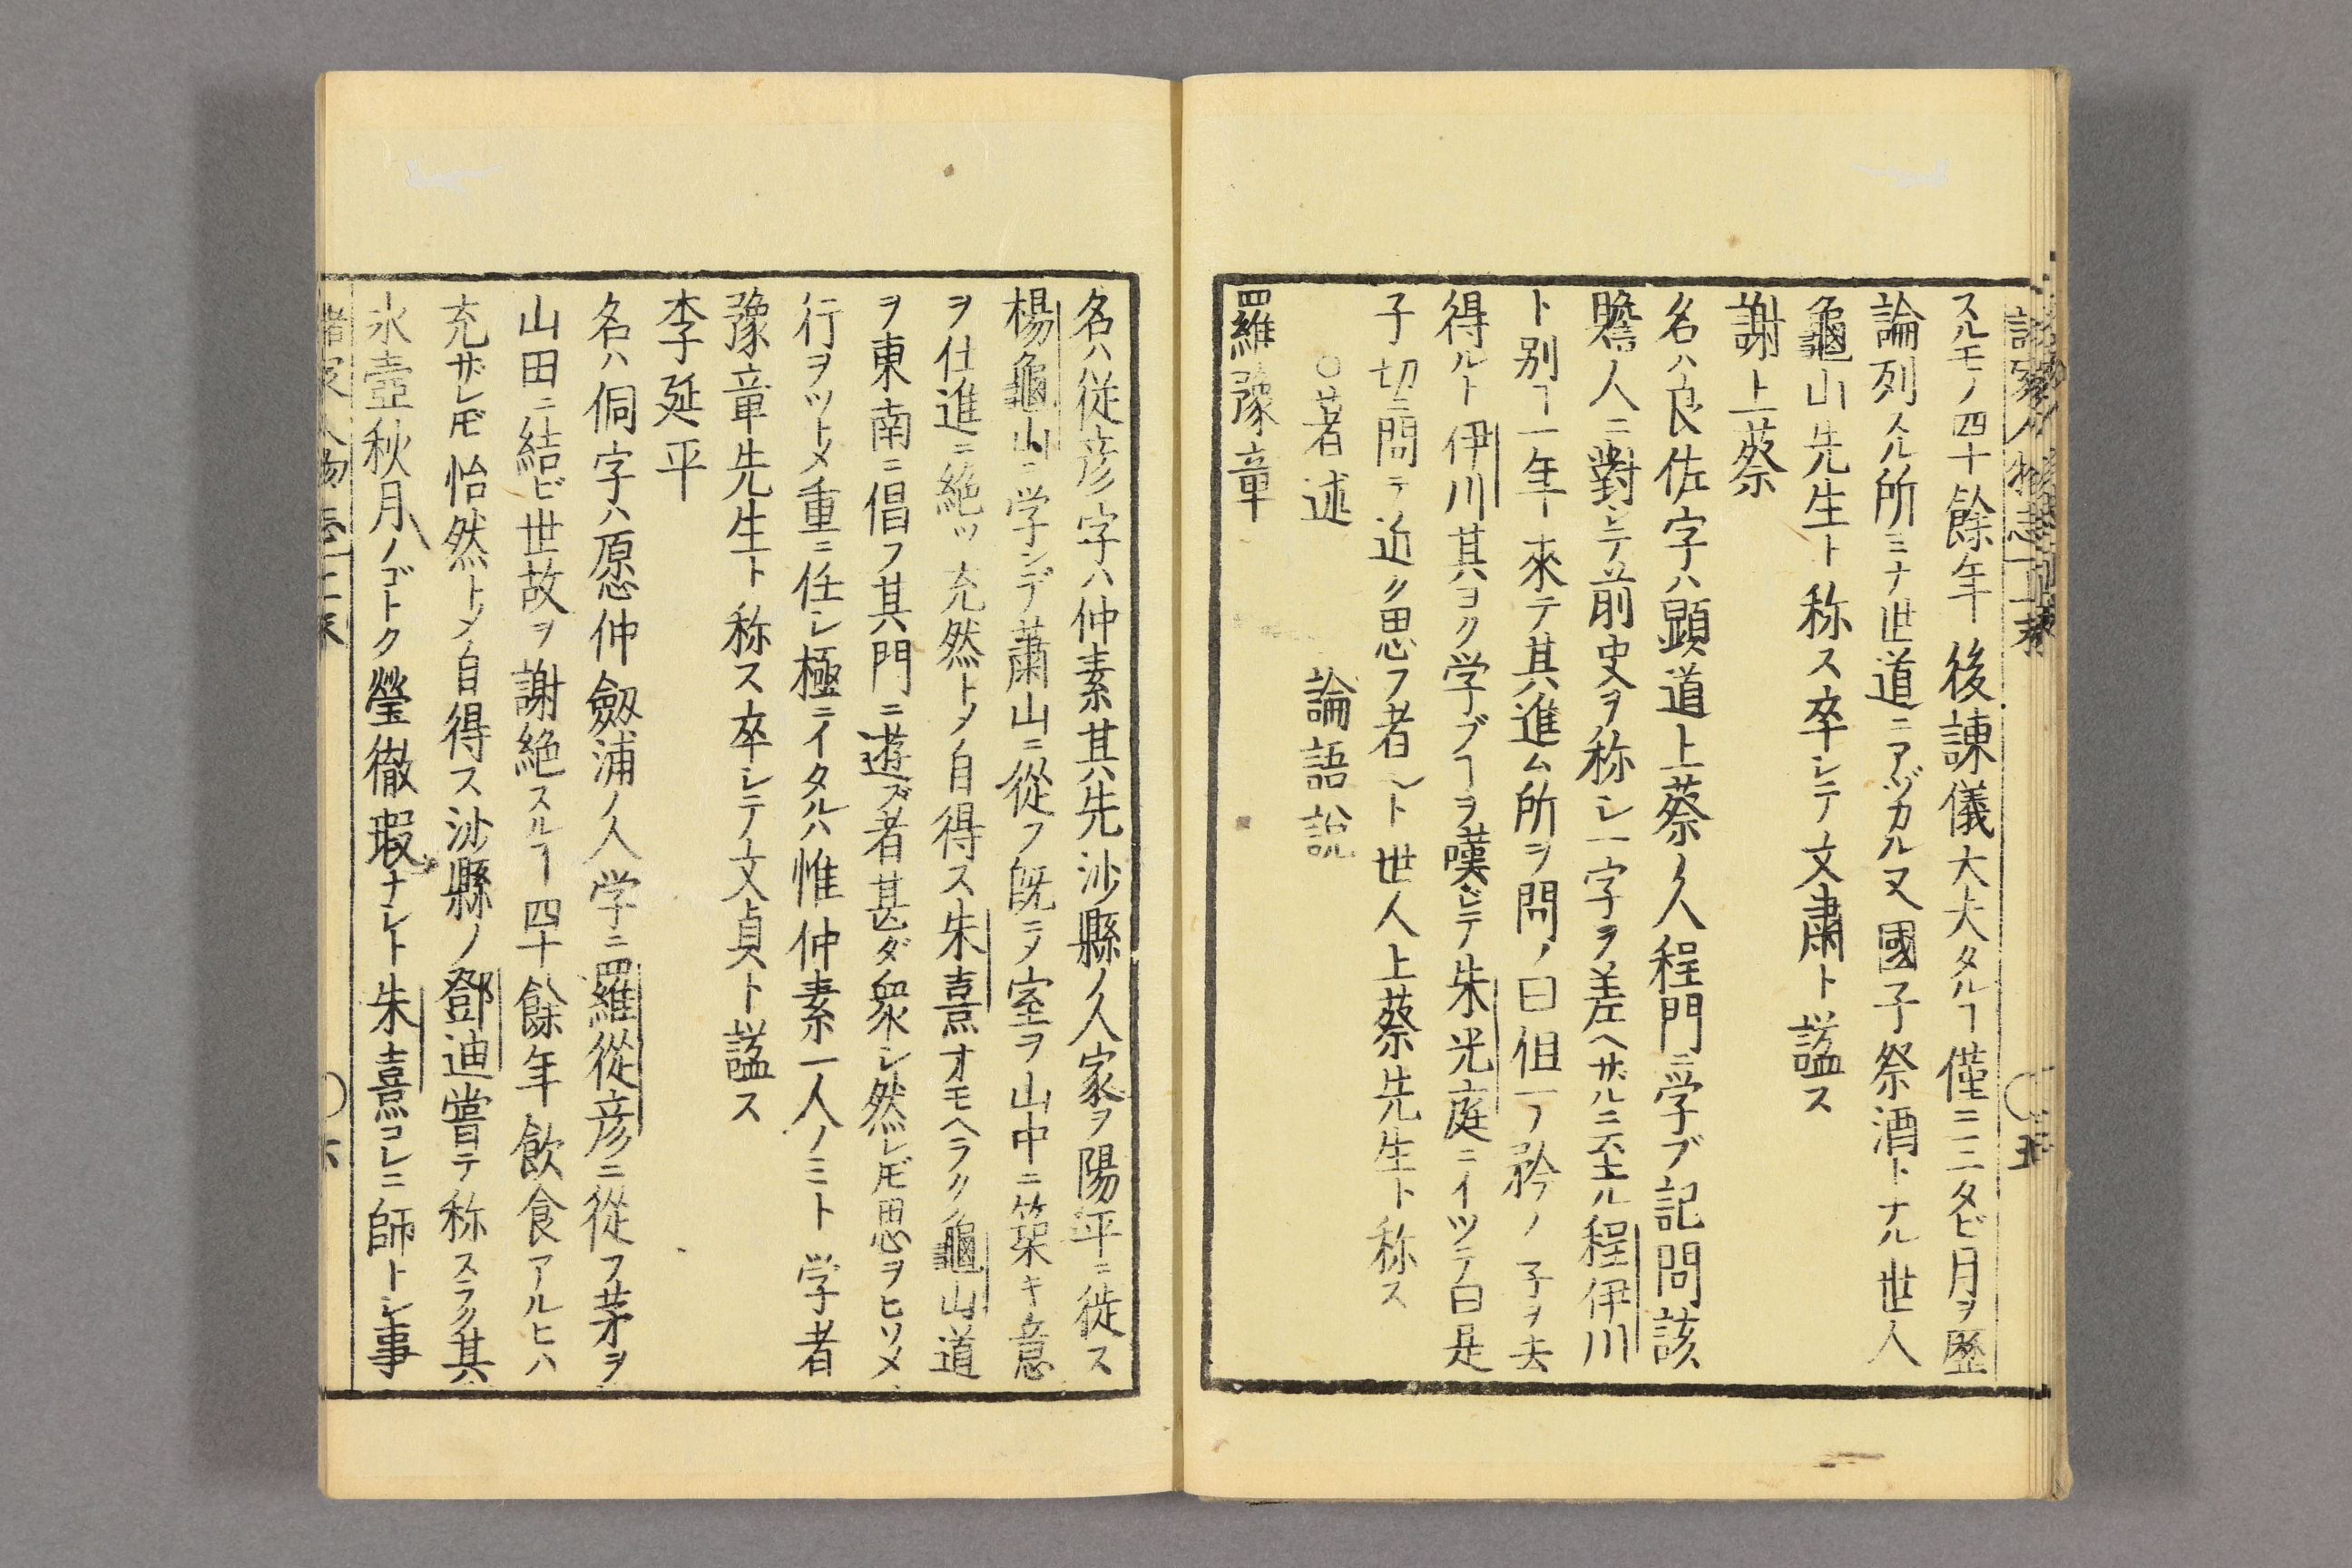 スルモノ四十餘年後諫儀大夫タルヿ僅ニ三タビ月ヲ歷
論列スル所ミナ世道ニアヅカル又國子祭酒トナル世人
龜山先生ト称ス卒シテ文肅ト謚ス
謝上蔡
名ハ良佐字ハ顕道上蔡ノ人程門ニ学ブ記問該
贍人ニ對シテ前史ヲ称シ一字ヲ差ヘザルニ至ル程伊川
ト別ヿ一年來テ其進ム所ヲ問ノ曰但一ノ矜ノ子ヲ去
得ルト伊川其ヨク学ブヿヲ嘆ジテ朱光庭ニイツテ曰是
子切ニ問テ近ク思フ者ト世人上蔡先生ト称ス
○著述 論語説
羅豫章
名ハ従彦字ハ仲素其先沙縣ノ人家ヲ陽平ニ徙ス
楊龜山ニ学ンデ蕭山ニ從フ既ニメ室ヲ山中ニ築キ意
ヲ仕進ニ絶ツ充然トメ自得ス朱熹オモヘラク龜山道
ヲ東南ニ倡フ其門ニ遊ブ者甚ダ衆シ然レ𪜈思ヲヒソメ
行ヲツトメ重ニ任シ極ニイタルハ惟仲素一人ノミト学者
豫章先生ト称ス卒シテ文貞ト謚ス
李延平
名ハ侗字ハ愿仲劔浦ノ人学ニ羅從彦ニ從フ茅ヲ
山田ニ結ビ世故ヲ謝絶スルヿ四十餘年飲食アルヒハ
充ザレ𪜈怡然トメ自得ス沙縣ノ鄧迪嘗テ称スラク其
氷壺秋月ノゴトク瑩徹瑕ナシト朱熹コレニ師トシ事